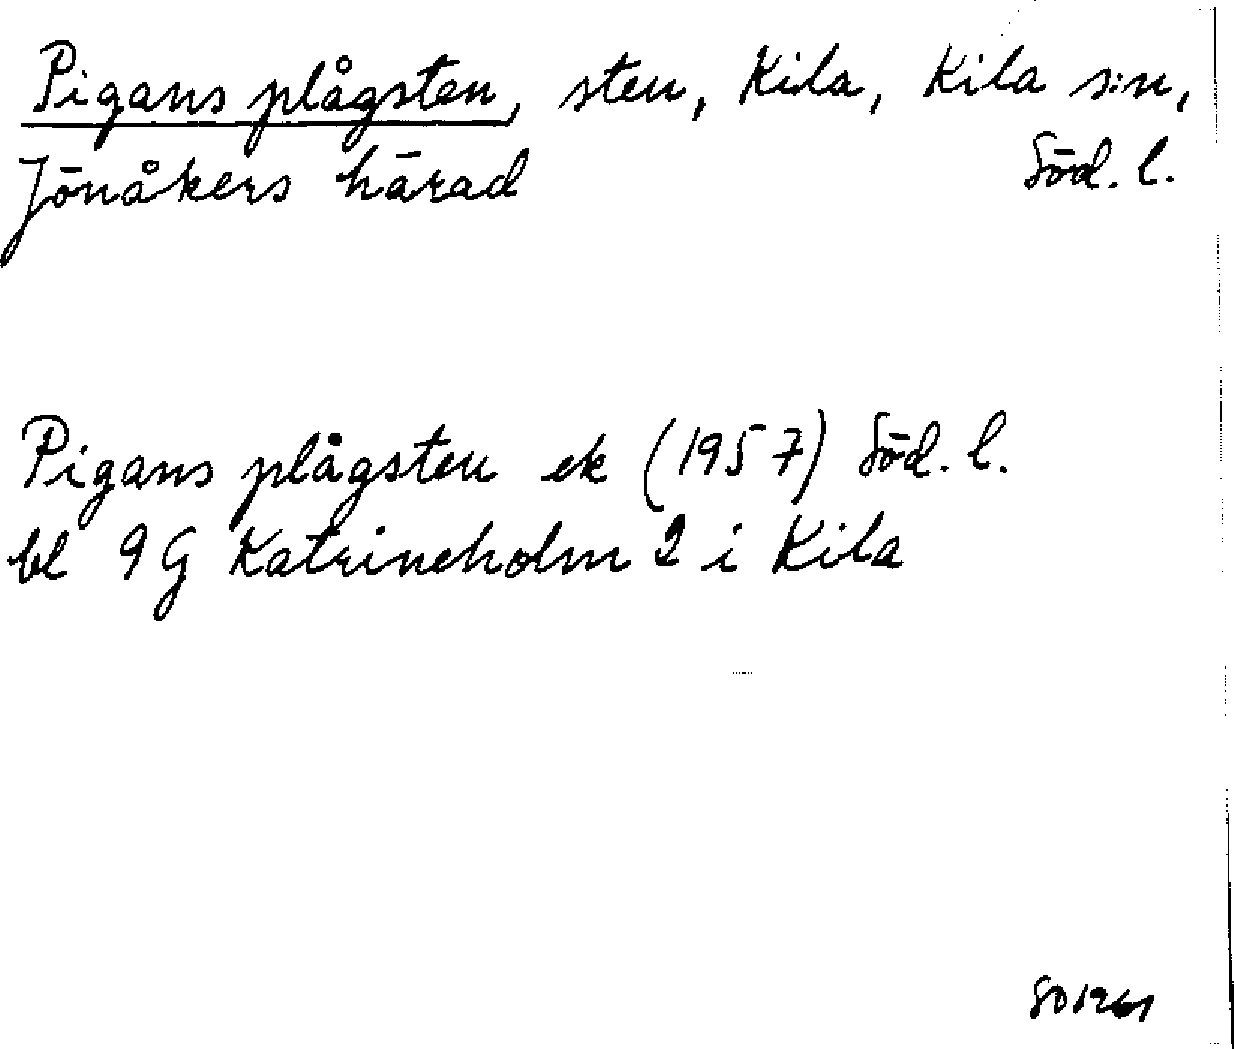 Pigans plågsten, sten, Kila, Kila s:n,
Jönåkers härad Söd. l.
Pigans plågsten ek (1957) Söd. l.
bl 9G Katrineholm 2 i Kila
SO 1961